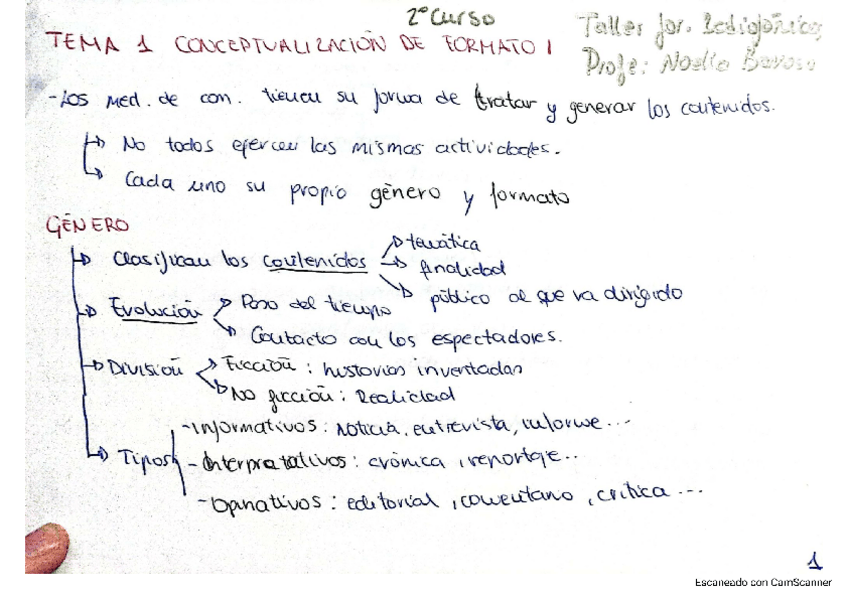 2º Curso
TEMA 1 CONCEPTUALIZACIÓN DE FORMATO 1
Taller for. Radiofónicos
Profe: Noelia
-Los med. de con. tienen su forma de tratar y generar los contenidos.
↳ No todos ejercen las mismas actividades.
↳ Cada uno su propio género y formato
GÉNERO
↳ Clasifican los contenidos
→ temática
→ finalidad
→ público al que va dirigido
↳ Evolución
→ Paso del tiempo
→ Contacto con los espectadores.
↳ División
→ Ficción : historias inventadas
→ No ficción : Realidad
↳ Tipos
-Informativos : noticia, entrevista, informe...
-Interpretativos : crónica, reportaje..
-Opinativos : editorial, comentario, crítica...
1
Escaneado con CamScanner